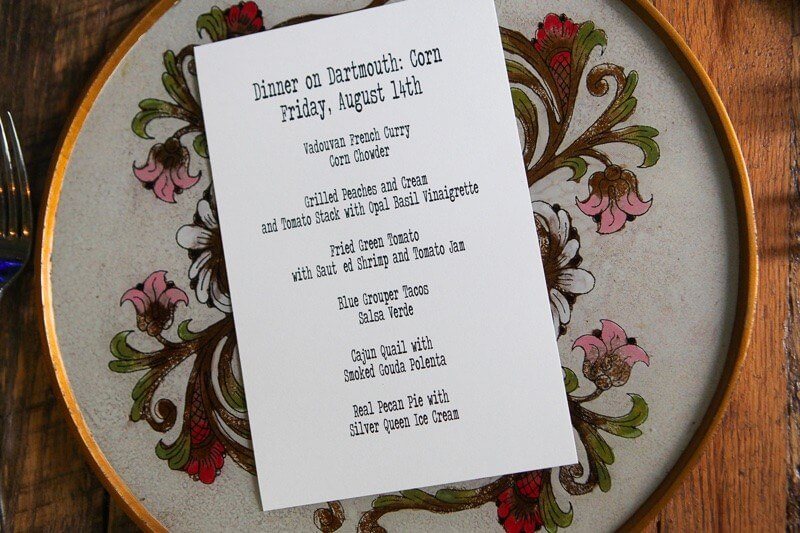 Dinner on Dartmouth: Corn
Friday, August 14th
Vadouvan French Curry
Corn Chowder
Grilled Peaches and Cream
and Tomato Stack with Opal Basil Vinaigrette
Fried Green Tomato
with Saut ed Shrimp and Tomato Jam
Blue Grouper Tacos
Salsa Verde
Cajun Quail with
Smoked Gouda Polenta
Real Pecan Pie with
Silver Queen Ice Cream